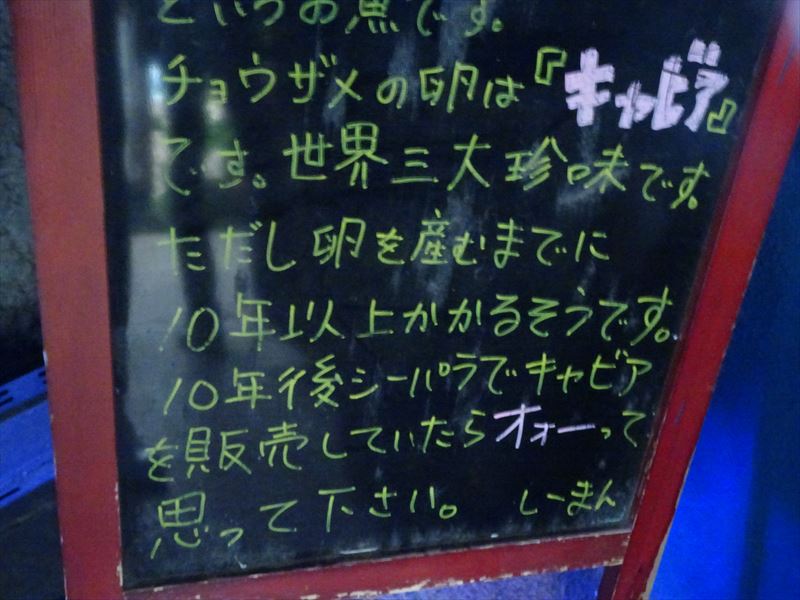 というお魚です。
チョウザメの卵は『キャビア』
です。世界三大珍味です。
ただし卵を産むまでに
10年以上かかるそうです。
10年後シーパラでキャビア
を販売していたらオォーって
思って下さい。 しーまん